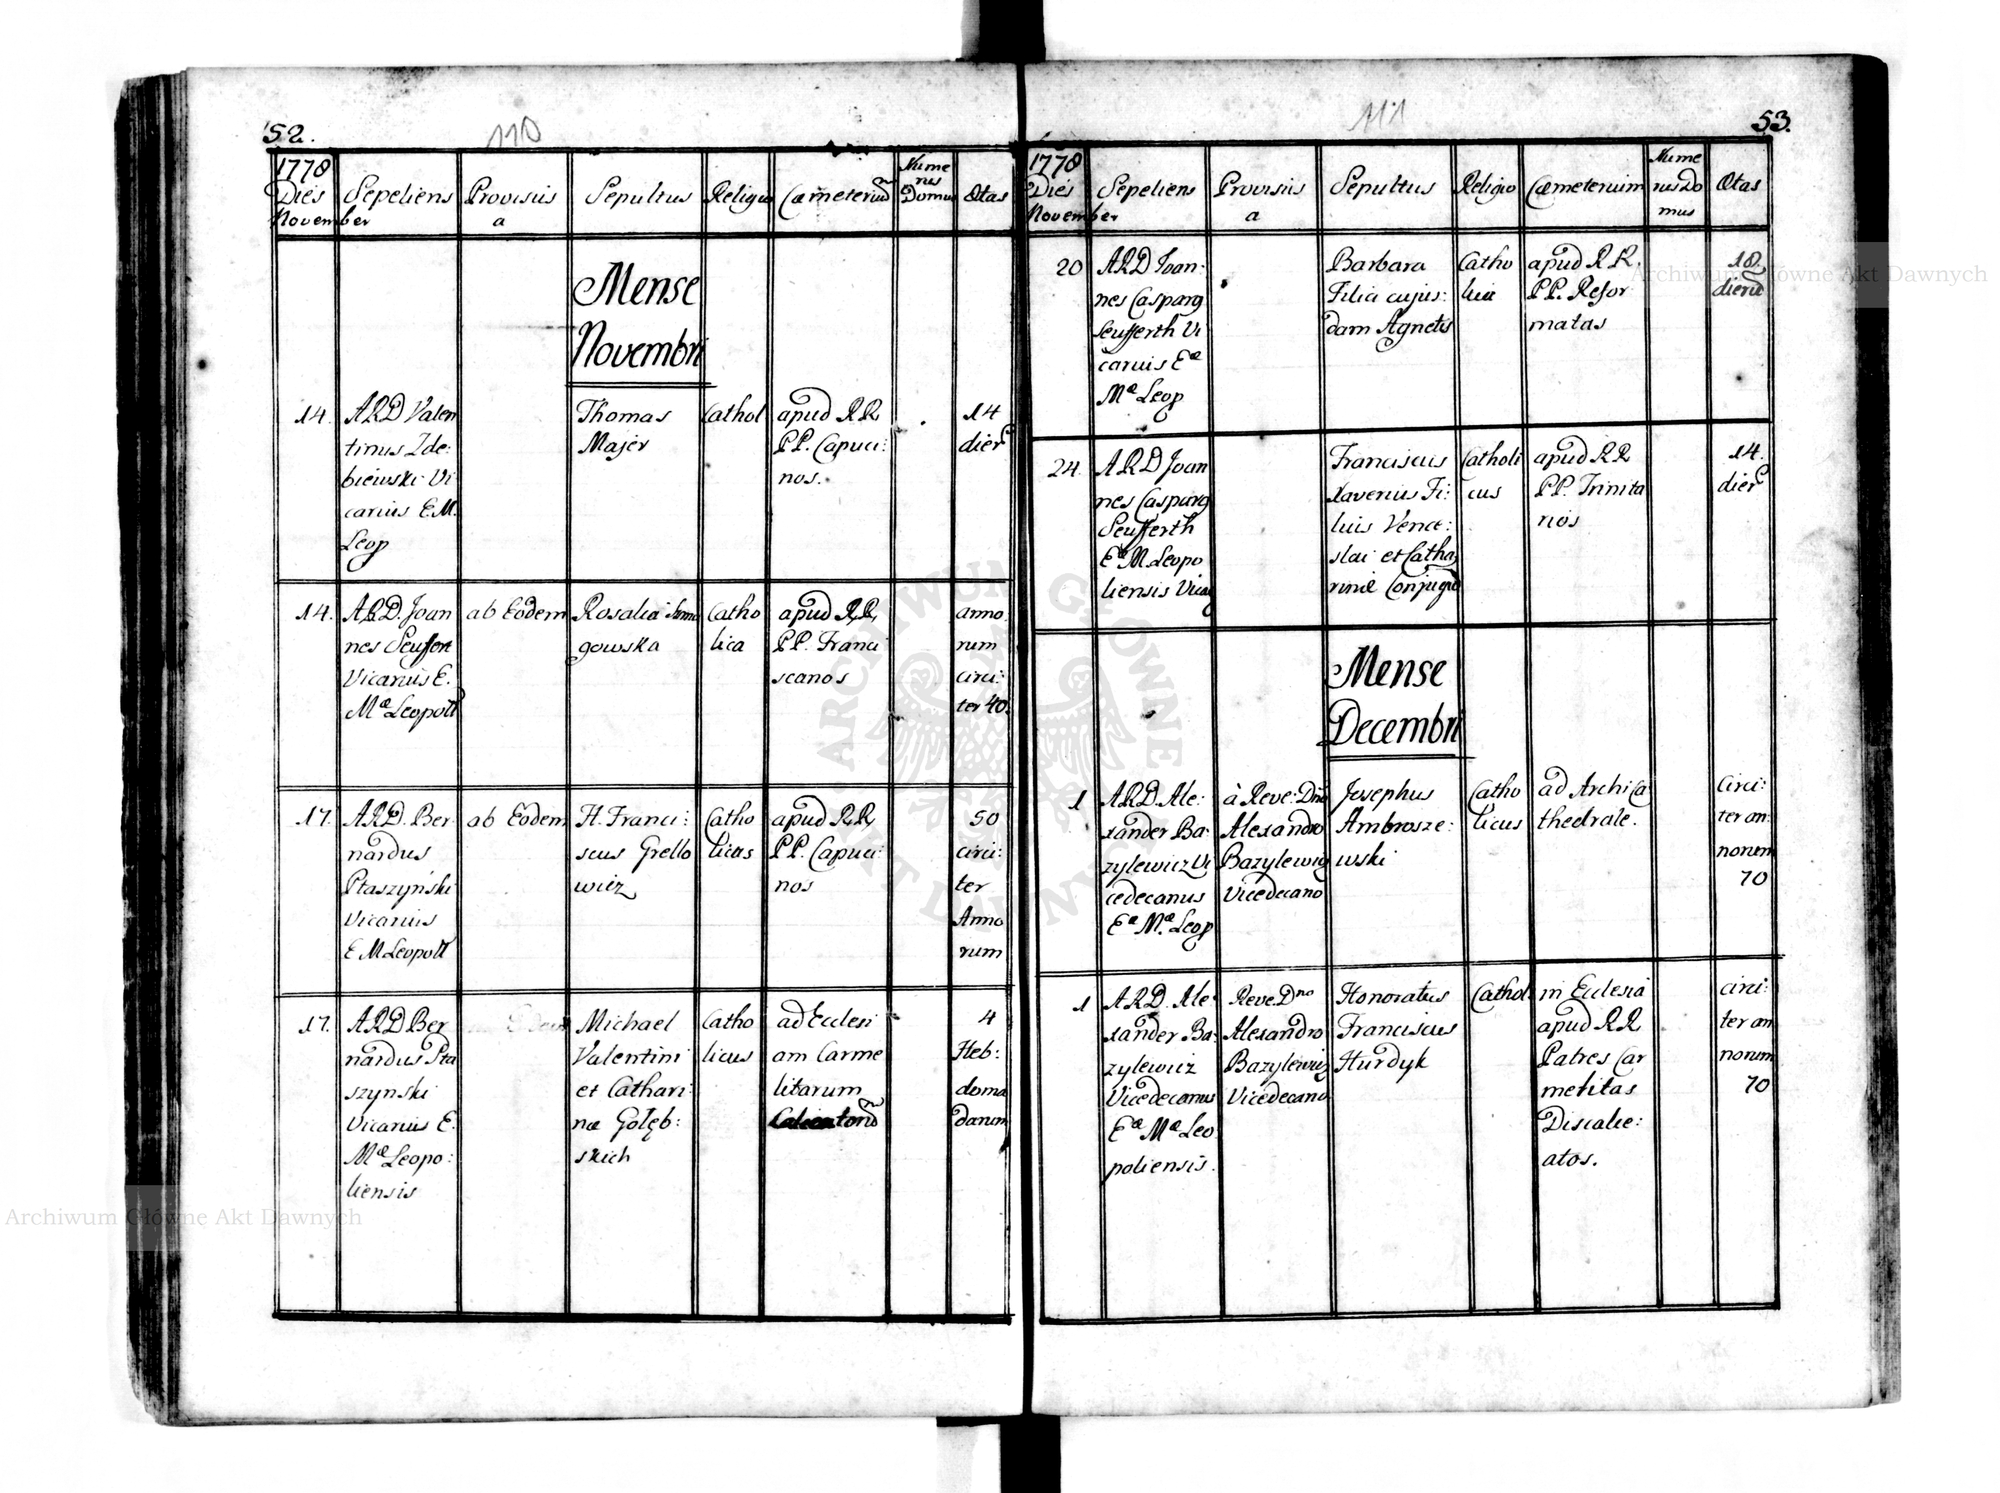 52.
110
1778
Dies
November
Sepeliens
Provisus
a
Sepultus
Religio
Cæmeterium
Nume
rus
Domus
Ætas
Mense
Novembri
14.
ARD Valen
tinus Zde:
biewski Vi
carius E.M.
Leop
Thomas
Majer
Cathol
apud RR
PP. Capuci:
nos.
14
dier
14.
ARD. Joan
nes Seuffert
Vicarius E.
Mæ Leopoll
ab Eodem
Rosalia
gowska
Catho
lica
apud RR
PP. Franci
scanos
anno
rum
circi:
ter 40.
17.
ARD. Ber
nardus
Ptaszyński
Vicarius
E M Leopoll
ab Eodem
H. Franci:
scus Grello
wicz
Catho
licus
apud RR
PP. Capuci:
nos
50
circi:
ter
Anno
rum
17.
ARD Ber
nardus Pta
szynski
Vicarius E.
Mæ Leopo:
liensis
Michael
Valentini
et Cathari:
næ Gołęb:
skich
Catho
licus
ad Eccles i
am Carme
litarum
4
Heb:
doma
darum
53.
111
1778
Dies
November
Sepeliens
Provisus
a
Sepultus
Religio
Cæmeterium
Nume
rus Do
mus
Ætas
20
ARD Joan:
nes Casparg
Seufferth Vi
carius Eæ
Mæ Leop
Barbara
Filia cujus:
dam Agnetis
Catho
lica
apud RR.
PP. Refor
matas
18
dieru
24.
ARD Joan
nes Casparg
Seufferth
Eæ M Leopo
liensis Vicarg
Franciscus
Xaverius Fi:
lius Vence:
slai et Catha
rinæ Conjugu
Catholi
cus
apud RR
PP. Trinita
rios
14.
dier
Mense
Decembri
1
ARD. Ale:
xander Ba:
zylewicz Vi
cedecanus
Eæ Mæ. Leop
à Reve: Dno
Alexandro
Bazylewicz
Vicedecano
Josephus
Ambrosze:
wski
Catho
licus
ad Archi Ca
thedrale.
circi:
ter an:
norum
70
1
ARD. Ale
xander Ba:
zylewicz
Vicedecanus
Eæ Mæ Leo
poliensis.
Reve. Dno
Alexandro
Bazylewicz
Vicedecano
Honoratus
Franciscus
Hurdyk
Cathol
in Ecclesia
apud RR
Patres Car
melitas
Discalce:
atos.
circi:
ter an
norum
70
Archiwum Główne Akt Dawnych
ARCHIWUM GŁÓWNE AKT DAWNYCH
Archiwum Główne Akt Dawnych